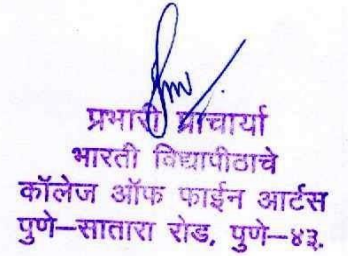 प्रभारी प्राचार्या
भारती विद्यापीठाचे
कॉलेज ऑफ फाईन आर्टस
पुणे–सातारा रोड, पुणे–४३.